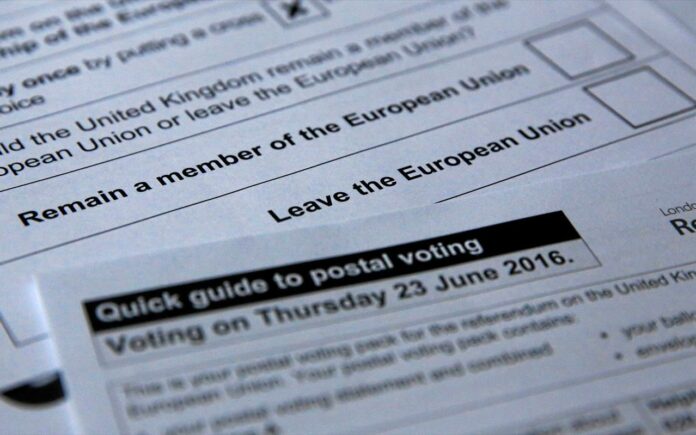 ship of the European
y once by putting a cross
oice
ld the United Kingdom remain a member of the
opean Union or leave the European Union?
Remain a member of the European Union
Leave the European Union
Quick guide to postal voting
Voting on Thursday 23 June 2016.
This is your postal voting pack for the referendum on the United Kingd
European Union. Your postal voting pack contains:
your postal voting statement and combined
• your ball
• envelo
Londo
Re